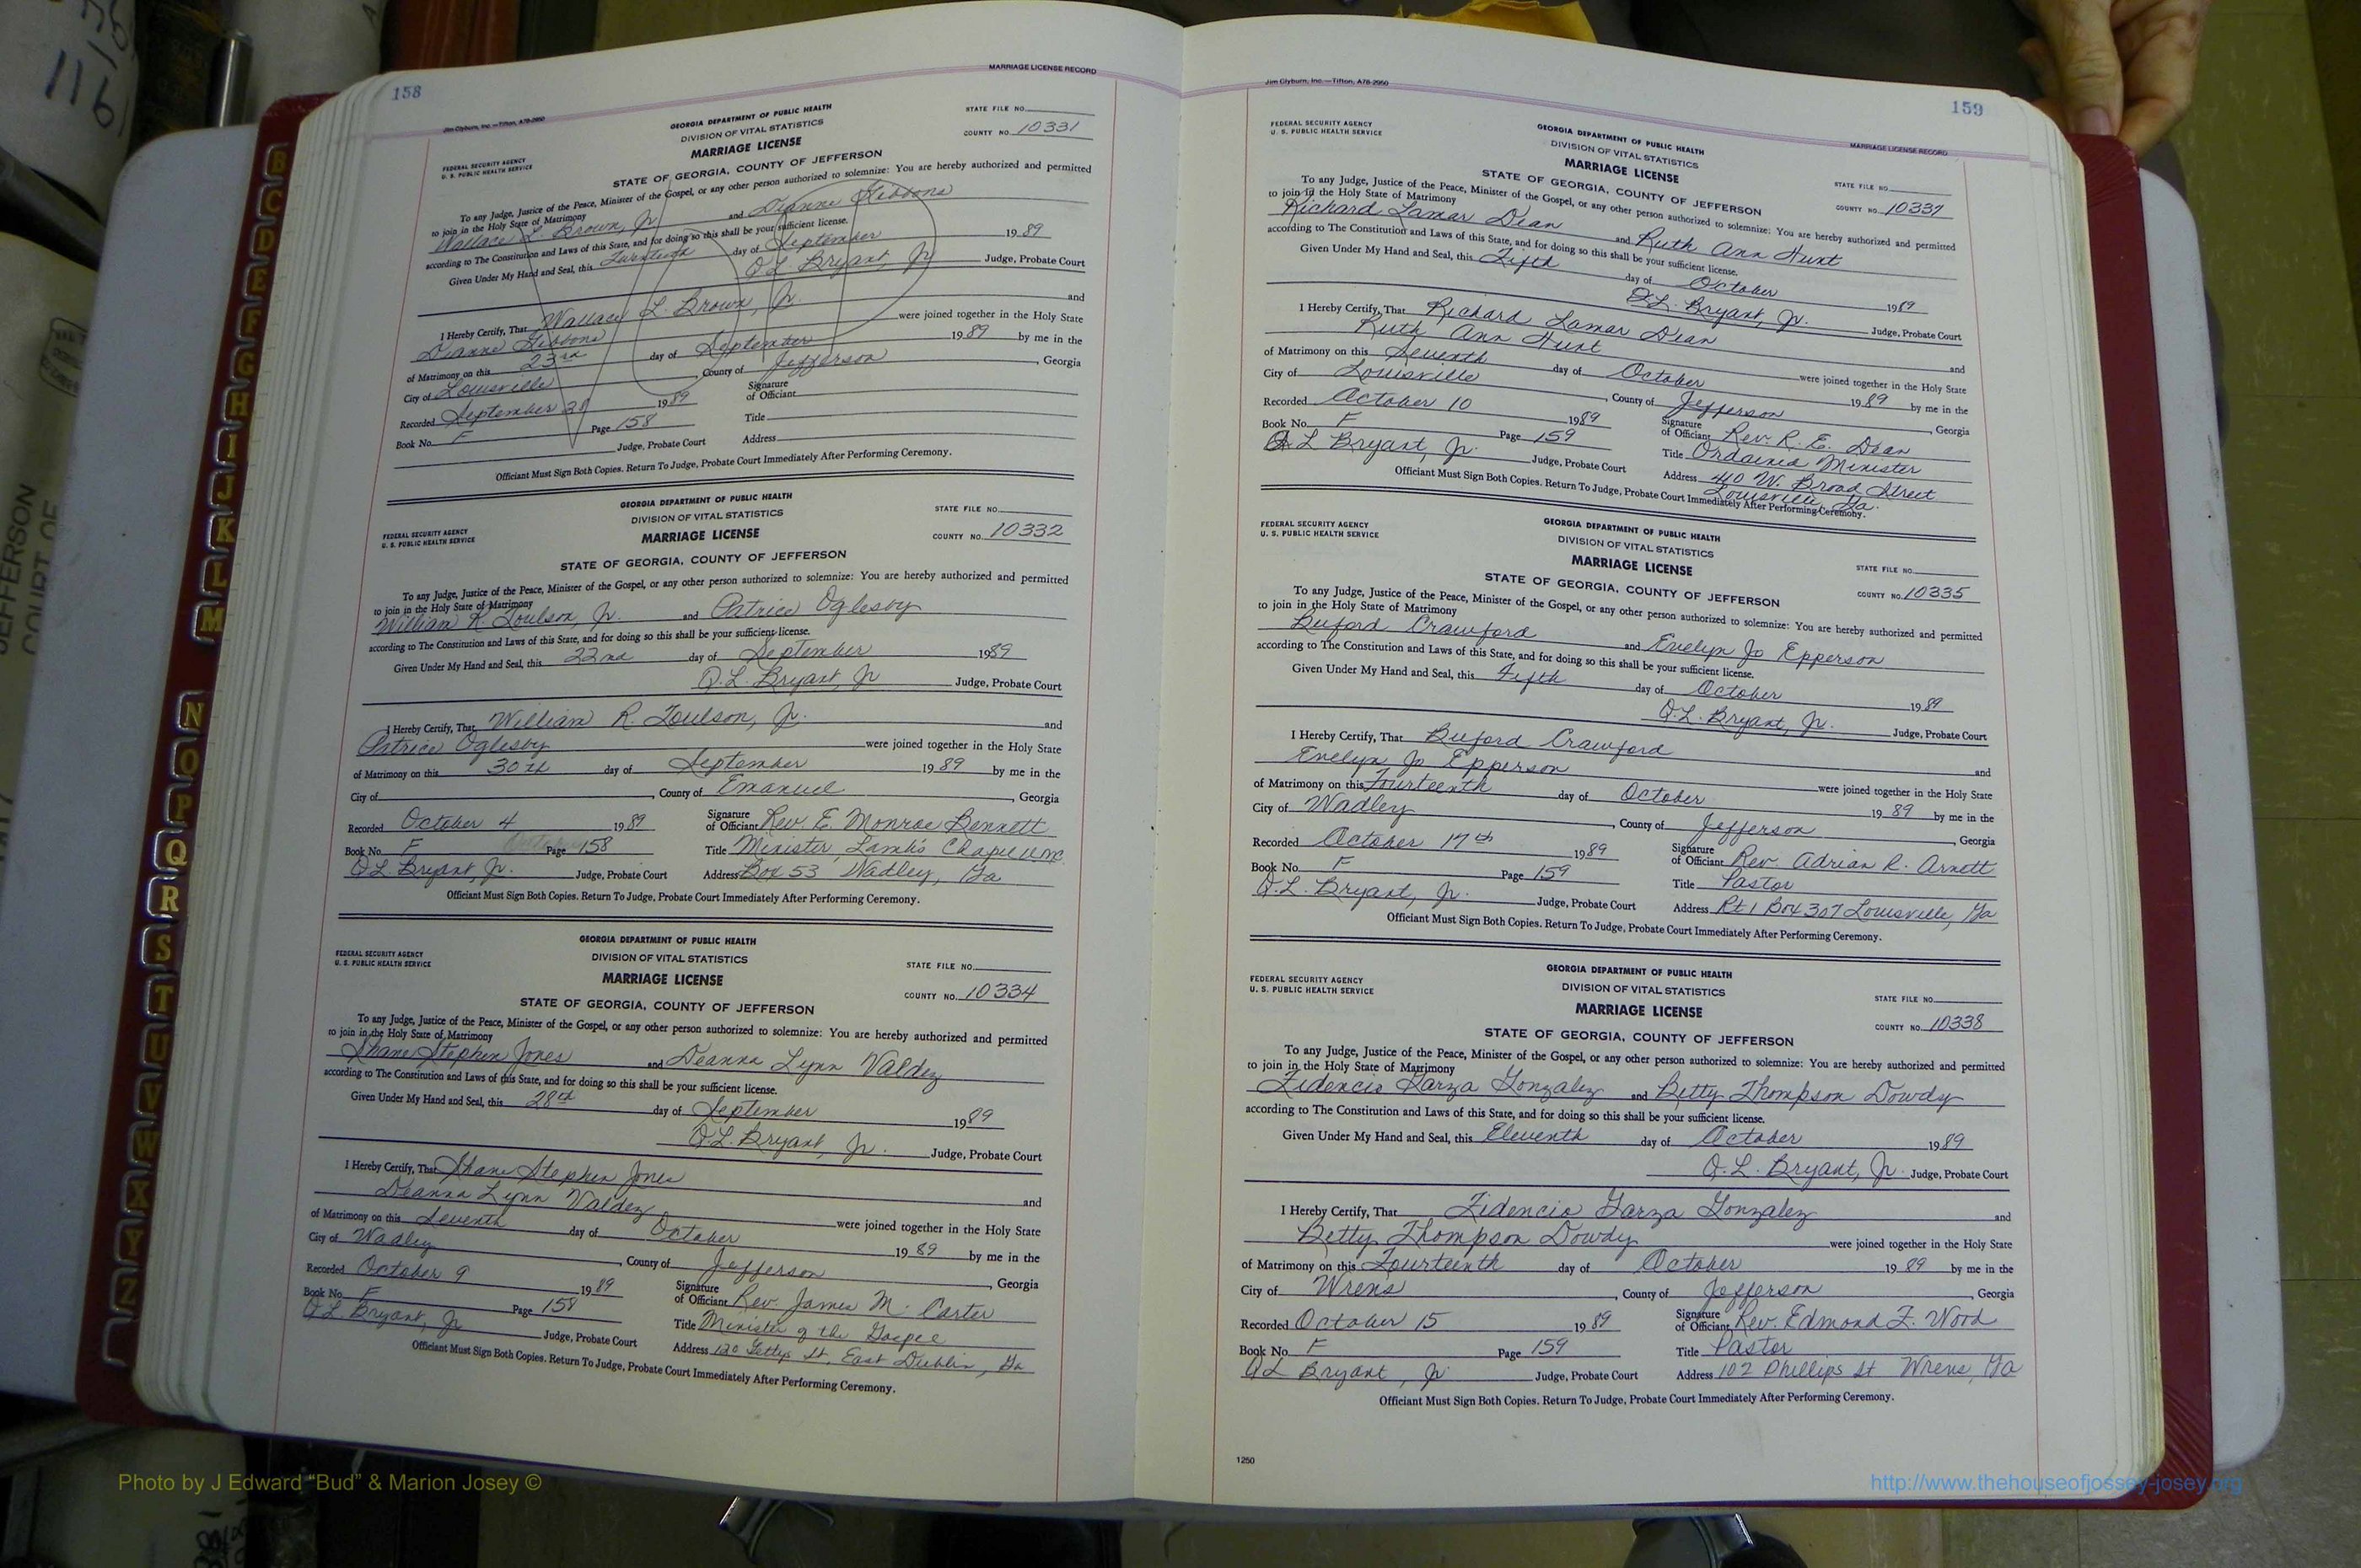 158
MARRIAGE LICENSE RECORD
Jim Clyburn, Inc.—Tifton, A78-2950
GEORGIA DEPARTMENT OF PUBLIC HEALTH
DIVISION OF VITAL STATISTICS
MARRIAGE LICENSE
STATE OF GEORGIA, COUNTY OF JEFFERSON
FEDERAL SECURITY AGENCY
U. S. PUBLIC HEALTH SERVICE
STATE FILE NO.
COUNTY NO. 10331
To any Judge, Justice of the Peace, Minister of the Gospel, or any other person authorized to solemnize: You are hereby authorized and permitted
to join in the Holy State of Matrimony
Wallace L. Brown, Jr. and Dianne Gibbons
according to The Constitution and Laws of this State, and for doing so this shall be your sufficient license.
Given Under My Hand and Seal, this Twentieth day of September 1989
Q L Bryant, Jr Judge, Probate Court
VOID
I Hereby Certify, That Wallace L. Brown, Jr. and
Dianne Gibbons were joined together in the Holy State
of Matrimony on this 23rd day of September 1989 by me in the
City of Louisville, County of Jefferson, Georgia
Recorded September 1989 Signature of Officiant
Book No. F Page 158 Title
Judge, Probate Court Address
Officiant Must Sign Both Copies. Return To Judge, Probate Court Immediately After Performing Ceremony.
GEORGIA DEPARTMENT OF PUBLIC HEALTH
DIVISION OF VITAL STATISTICS
MARRIAGE LICENSE
STATE OF GEORGIA, COUNTY OF JEFFERSON
FEDERAL SECURITY AGENCY
U. S. PUBLIC HEALTH SERVICE
STATE FILE NO.
COUNTY NO. 10332
To any Judge, Justice of the Peace, Minister of the Gospel, or any other person authorized to solemnize: You are hereby authorized and permitted
to join in the Holy State of Matrimony
William R. Toulson, Jr. and Patrice Oglesby
according to The Constitution and Laws of this State, and for doing so this shall be your sufficient license.
Given Under My Hand and Seal, this 22nd day of September 1989
Q.L. Bryant, Jr Judge, Probate Court
I Hereby Certify, That William R. Toulson, Jr. and
Patrice Oglesby were joined together in the Holy State
of Matrimony on this 30th day of September 1989 by me in the
City of, County of Emanuel, Georgia
Recorded October 4 1989 Signature of Officiant Rev. E. Monroe Bennett
Book No. F Page 158 Title Minister, Lamb's Chapel UMC
Q.L. Bryant, Jr. Judge, Probate Court Address Box 53 Wadley, Ga
Officiant Must Sign Both Copies. Return To Judge, Probate Court Immediately After Performing Ceremony.
GEORGIA DEPARTMENT OF PUBLIC HEALTH
DIVISION OF VITAL STATISTICS
MARRIAGE LICENSE
STATE OF GEORGIA, COUNTY OF JEFFERSON
FEDERAL SECURITY AGENCY
U. S. PUBLIC HEALTH SERVICE
STATE FILE NO.
COUNTY NO. 10334
To any Judge, Justice of the Peace, Minister of the Gospel, or any other person authorized to solemnize: You are hereby authorized and permitted
to join in the Holy State of Matrimony
Shane Stephen Jones and Deanna Lynn Valdez
according to The Constitution and Laws of this State, and for doing so this shall be your sufficient license.
Given Under My Hand and Seal, this 28th day of September 1989
Q.L. Bryant, Jr. Judge, Probate Court
I Hereby Certify, That Shane Stephen Jones and
Deanna Lynn Valdez were joined together in the Holy State
of Matrimony on this Seventh day of October 1989 by me in the
City of Wadley, County of Jefferson, Georgia
Recorded October 9 1989 Signature of Officiant Rev James M. Carter
Book No. F Page 158 Title Minister of the Gospel
Q.L. Bryant, Jr Judge, Probate Court Address 120 St, East Dublin, Ga
Officiant Must Sign Both Copies. Return To Judge, Probate Court Immediately After Performing Ceremony.
159
Jim Clyburn, Inc.—Tifton, A78-2950
MARRIAGE LICENSE RECORD
FEDERAL SECURITY AGENCY
U. S. PUBLIC HEALTH SERVICE
GEORGIA DEPARTMENT OF PUBLIC HEALTH
DIVISION OF VITAL STATISTICS
MARRIAGE LICENSE
STATE OF GEORGIA, COUNTY OF JEFFERSON
STATE FILE NO.
COUNTY NO. 10337
To any Judge, Justice of the Peace, Minister of the Gospel, or any other person authorized to solemnize: You are hereby authorized and permitted
to join in the Holy State of Matrimony
Richard Lamar Dean and Ruth Ann Hunt
according to The Constitution and Laws of this State, and for doing so this shall be your sufficient license.
Given Under My Hand and Seal, this Fifth day of October 1989
Q.L. Bryant, Jr. Judge, Probate Court
I Hereby Certify, That Richard Lamar Dean and
Ruth Ann Hunt were joined together in the Holy State
of Matrimony on this Seventh day of October 1989 by me in the
City of Louisville, County of Jefferson, Georgia
Recorded October 10 1989 Signature of Officiant Rev. R. E. Dean
Book No. F Page 159 Title Ordained Minister
Q L Bryant, Jr. Judge, Probate Court Address 410 W. Broad Street
Louisville, Ga.
Officiant Must Sign Both Copies. Return To Judge, Probate Court Immediately After Performing Ceremony.
FEDERAL SECURITY AGENCY
U. S. PUBLIC HEALTH SERVICE
GEORGIA DEPARTMENT OF PUBLIC HEALTH
DIVISION OF VITAL STATISTICS
MARRIAGE LICENSE
STATE OF GEORGIA, COUNTY OF JEFFERSON
STATE FILE NO.
COUNTY NO. 10335
To any Judge, Justice of the Peace, Minister of the Gospel, or any other person authorized to solemnize: You are hereby authorized and permitted
to join in the Holy State of Matrimony
Buford Crawford and Evelyn Jo Epperson
according to The Constitution and Laws of this State, and for doing so this shall be your sufficient license.
Given Under My Hand and Seal, this Fifth day of October 1989
Q.L. Bryant, Jr. Judge, Probate Court
I Hereby Certify, That Buford Crawford and
Evelyn Jo Epperson were joined together in the Holy State
of Matrimony on this Fourteenth day of October 1989 by me in the
City of Wadley, County of Jefferson, Georgia
Recorded October 17th 1989 Signature of Officiant Rev. Adrian R. Arnett
Book No. F Page 159 Title Pastor
Q.L. Bryant, Jr. Judge, Probate Court Address Rt 1 Box 307 Louisville, Ga
Officiant Must Sign Both Copies. Return To Judge, Probate Court Immediately After Performing Ceremony.
FEDERAL SECURITY AGENCY
U. S. PUBLIC HEALTH SERVICE
GEORGIA DEPARTMENT OF PUBLIC HEALTH
DIVISION OF VITAL STATISTICS
MARRIAGE LICENSE
STATE OF GEORGIA, COUNTY OF JEFFERSON
STATE FILE NO.
COUNTY NO. 10338
To any Judge, Justice of the Peace, Minister of the Gospel, or any other person authorized to solemnize: You are hereby authorized and permitted
to join in the Holy State of Matrimony
Fidencio Garza Gonzalez and Betty Thompson Dowdy
according to The Constitution and Laws of this State, and for doing so this shall be your sufficient license.
Given Under My Hand and Seal, this Eleventh day of October 1989
Q.L. Bryant, Jr. Judge, Probate Court
I Hereby Certify, That Fidencio Garza Gonzalez and
Betty Thompson Dowdy were joined together in the Holy State
of Matrimony on this Fourteenth day of October 1989 by me in the
City of Wrens, County of Jefferson, Georgia
Recorded October 15 1989 Signature of Officiant Rev. Edmond F. Wood
Book No. F Page 159 Title Pastor
Q L Bryant, Jr Judge, Probate Court Address 102 Phillips St Wrens, Ga
Officiant Must Sign Both Copies. Return To Judge, Probate Court Immediately After Performing Ceremony.
1250
B
C
D
E
F
G
H
I
J
K
L
M
N
O
P
Q
R
S
T
U
V
W
X
Y
Z
JEFFERSON
COURT OF
Photo by J Edward “Bud” & Marion Josey ©
http://www.thehouseofjossey-josey.org